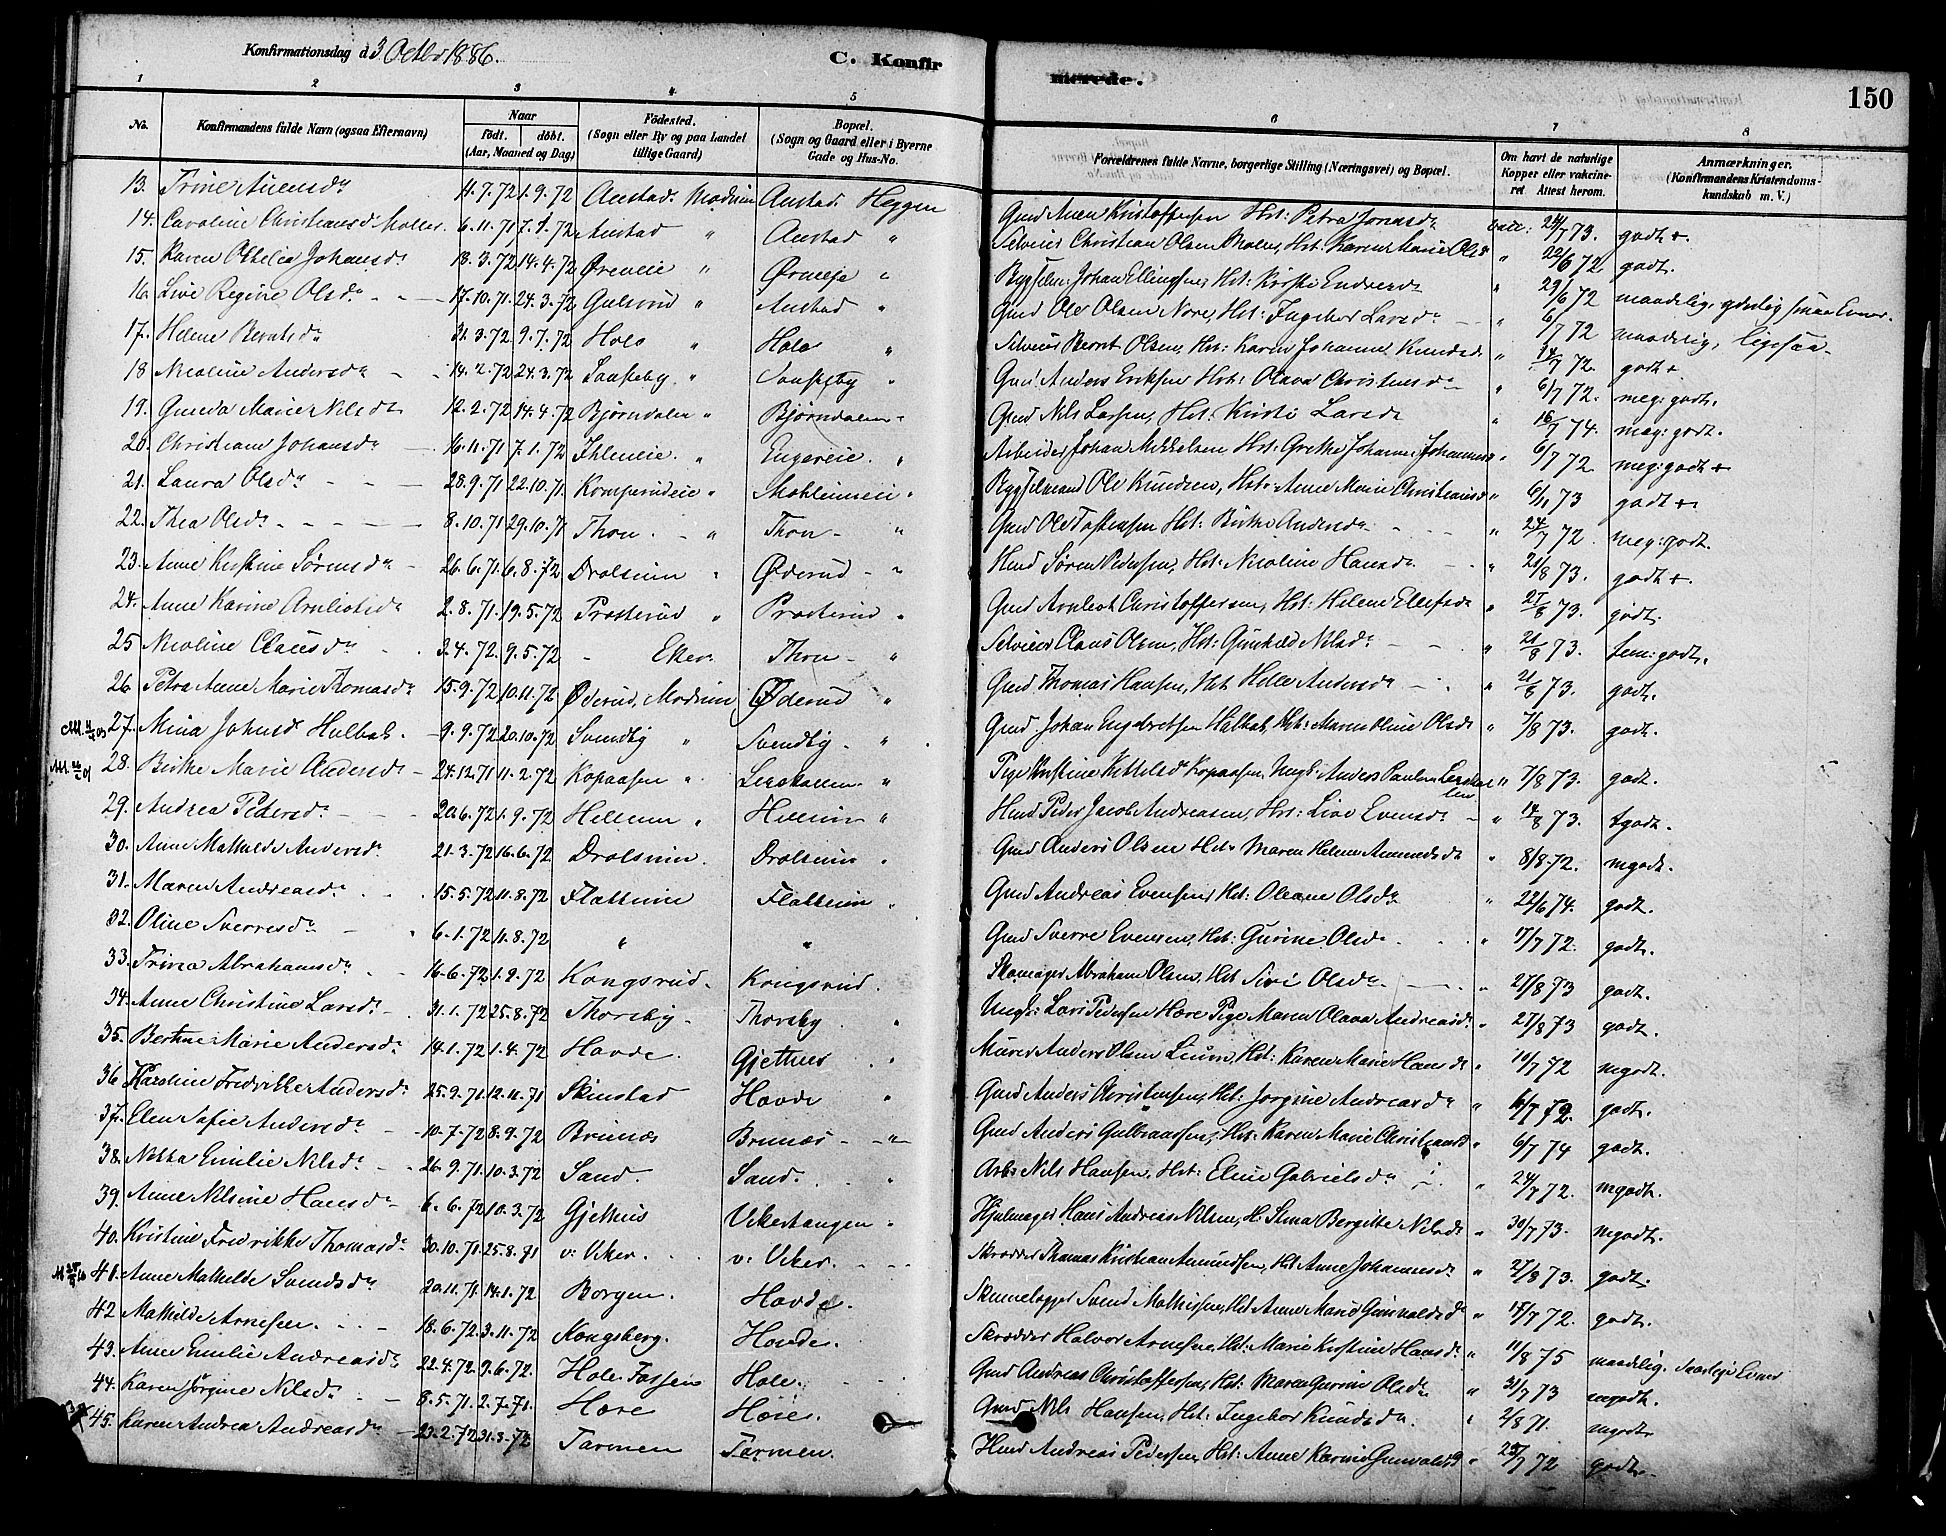 Konfirmationsdag d. 3 Octbr 1886.
C. Konfirmerede.
150
1 2 3 4 5 6 7 8
No. Konfirmandens fulde Navn (ogsaa Efternavn) Naar födt. döbt. (Aar, Maaned og Dag) Födested. (Sogn eller By og paa Landet tillige Gaard) Bopæl. (Sogn og Gaard eller i Byerne Gade og Hus-No. Forældrenes fulde Navne, borgerlige Stilling (Næringsvei) og Bopæl. Om havt de naturlige Kopper eller vakcineret Attest herom. Anmærkninger. (Konfirmandens Kristendomskundskab m. V.)
13. 11.7.72 1.9.72 Anstad. Modum Anstad Heggen Gmd Kristoffersen Hst: Petra Jonasda 24/7 73. godt +.
14. Caroline Christiansd Moller 6.11.71 7.1.72 Anstad " Anstad " Selveier Christian Olsen Moller, Hst: Karen Marie Olsd " 22/6 72 godt.
15. Karen Othelia Johansda 18.3.72 14.4.72 " " Johan Ellingsen, Hst: Kirsti " 29/6 72
16. Live Regine Olsda 17.10.71 24.3.72 Gulsrud " Anstad " Gmd Ole Olsen Nore, Hst: Ingebor Larsda " 6/7 72
17. Helene Berntsda 31.3.72 9.7.72 Hole " Hole " Selveier Bernt Olsen, Hst: Karen Johanne Knudsd " 14/7 72. godt +
18 Nicoline Andersda 14.2.72 24.3.72 " " Gmd Anders Eriksen Hst: Olava Christensda " 6/7 72. meg: godt.
19. Gunda Marie Nilsda 12.2.72 14.4.72 Bjørndalen " Bjørndalen " Gmd Nils Larsen, Hst: Kirsti Larsda " 16/7 74. meg: godt.
20. Christiane Johansda 16.11.71 7.1.72 Ihleneie. " Engereie. " Arbeider Johan Mikkelsen Hst: Grethe Johanne Johannesd " 6/7 72 meg: godt +
21. Laura Olsda 28.9.71 22.10.71. Komperudeie " " Bygselmand Ole Knudsen, Hst: Anne Marie Christiansd " 73 godt +.
22. Thea Olsda 8.10.71 29.10.71 Thon. " Thon " Gmd Ole Tostensen Hst: Birthe Andersda " 24/7 72. meg: godt.
23. Anne Kirstine Sørensda 26.6.71 6.8.72 Drolsum " Øderud " Hmd Søren Pedersen, Hst: Nicoline Hansda " 21/8 73. godt +.
24. Anne Karine Arnliotsda 2.8.71. 19.5.72 Præsterud " Præsterud " Gmd Arnleot Christoffersen, Hst: Helene Ellefsda " 27/8 73. godt.
25 Nicoline Clausda 3.4.72. 9.5.72 - Eker. Thon " Selveier Claus Olsen, Hst: Gunhild Nilsda " 21/8 73. tem: godt.
26. Petra Anne Marie Thomasda 15.9.72 10.11.72 Øderud, Modum Øderud " Gmd Thomas Hansen, Hst Helle Andersda " 21/8 73. godt.
27. Mina Johnsd Holbak. 9.9.72 20.10.72 Svendby " Svendby " Gmd Johan Holbak, Hst: Maren Oline Olsda " 7/8 73. godt.
28. Birthe Marie Andersda 24.12.71 11.2.72 Kopaasen " Lerskallen " Pige Kirstine Kittelsd Kopaasen, Ungk: Anders Paulsen Lerskallen " 7/8 73. godt.
29. Andrea Pedersda 20.6.72 1.9.72 Hellerum " Hellerum " Hmd Peder Jacob Andreasen, Hst: Live Evensda " 14/8 73. tgodt.
30. Anne Mathilde Andersda 21.3.72 16.6.72 Drolsum. Drolsum " Gmd Anders Olsen Hst: Maren Helene Amundsda " 8/8 72. mgodt.
31. Maren Andreasda 15.5.72 11.8.72 Flattum Flattum " Gmd Andreas Evensen, Hst: Oleane Olsda " 22/6 74. godt.
32. Oline Sverresda 6.1.72 11.8.72 " " Gmd Sverre Evensen, Hst: Gurine Olsda " 17/7 72. godt.
33. Trina Abrahamsda 16.6.72 1.9.72 Kongsrud. Kongsrud. Skomager Abraham Olsen, Hst Siri Olsda " 27/8 73 godt.
34. Anne Christine Larsda 31.1.72 25.8.72 Thorsby Thorsby " Ungk: Lars Pedersen Hære Pige Maren Olava Andreasda " 27/8 73 godt.
35. Bertine Marie Andersda 14.1.72 1.4.72 Hovde. Gjethus " Murer Anders Olsen Lium, Hst: Karen Marie Hansda " 10/7 72 mgodt.
36 Karoline Fredrikke Andersda 25.9.71 12.11.71 Skinstad Hovde " Gmd Anders Christensen, Hst: Jorgine Andreasda " 6/7 72. godt.
37. Elen Sofie Andersda 10.7.72 8.9.72 Brunæs Brunæs " Gmd Anders Gulbransen, Hst: Karen Marie Christiansd " 6/7 74 godt.
38. Netta Emilie Nilsda 26.9.71. 10.3.72 Sand. Sand. " Arb: Nils Hansen, Hst: Eline Gabrielsda " 24/7 72. mgodt.
39. Anne Nilsine Hansda 6.6.72 10.3.72 Gjethus Vikertangen " Hjulmager Hans Andreas Nilsen, H. Stina Bergitte Nilsda " 30/7 73. mgodt.
40. Kristine Fredrikke Thomasda 30.10.71. 25.8.71 v: Viker. v: Viker. Skrædder Thomas Kristian Amundsen, Hst Anne Johannesda " 27/8 73. godt.
41. Anne Mathilde Svendsda 20.11.71. 14.1.72 Borgen. Hovde. Svend Mathisen, Hst Anne Marie Gunvaldsda " 17/7 72. godt.
42 Mathilde Arnesen. 18.6.72 3.11.72 Kongsberg. Hovde. Skrædder Halvor Arnesen, Hst: Marie Kirstine Hansda " 11/8 75 maadelig.
43. Anne Emilie Andreasda 22.4.72. 9.6.72. Hole Fossen Hole. Gmd Andreas Christoffersen, Hst: Maren Gurine Olsda " 31/7 73 mgodt.
44. Karen Jørgine Nilsda 8.5.71. 2.7.71. Hære Hære. Gmd Nils Hansen, Hst: Ingebor Knudsda " 2/8 71. mgodt.
45. Karen Andrea Andreasda 23.2.72 31.3.72 Tarmen Tarmen. Hmd Andreas Pedersen, Hst: Anne Karine Gunvaldsd " 25/7 72 godt.